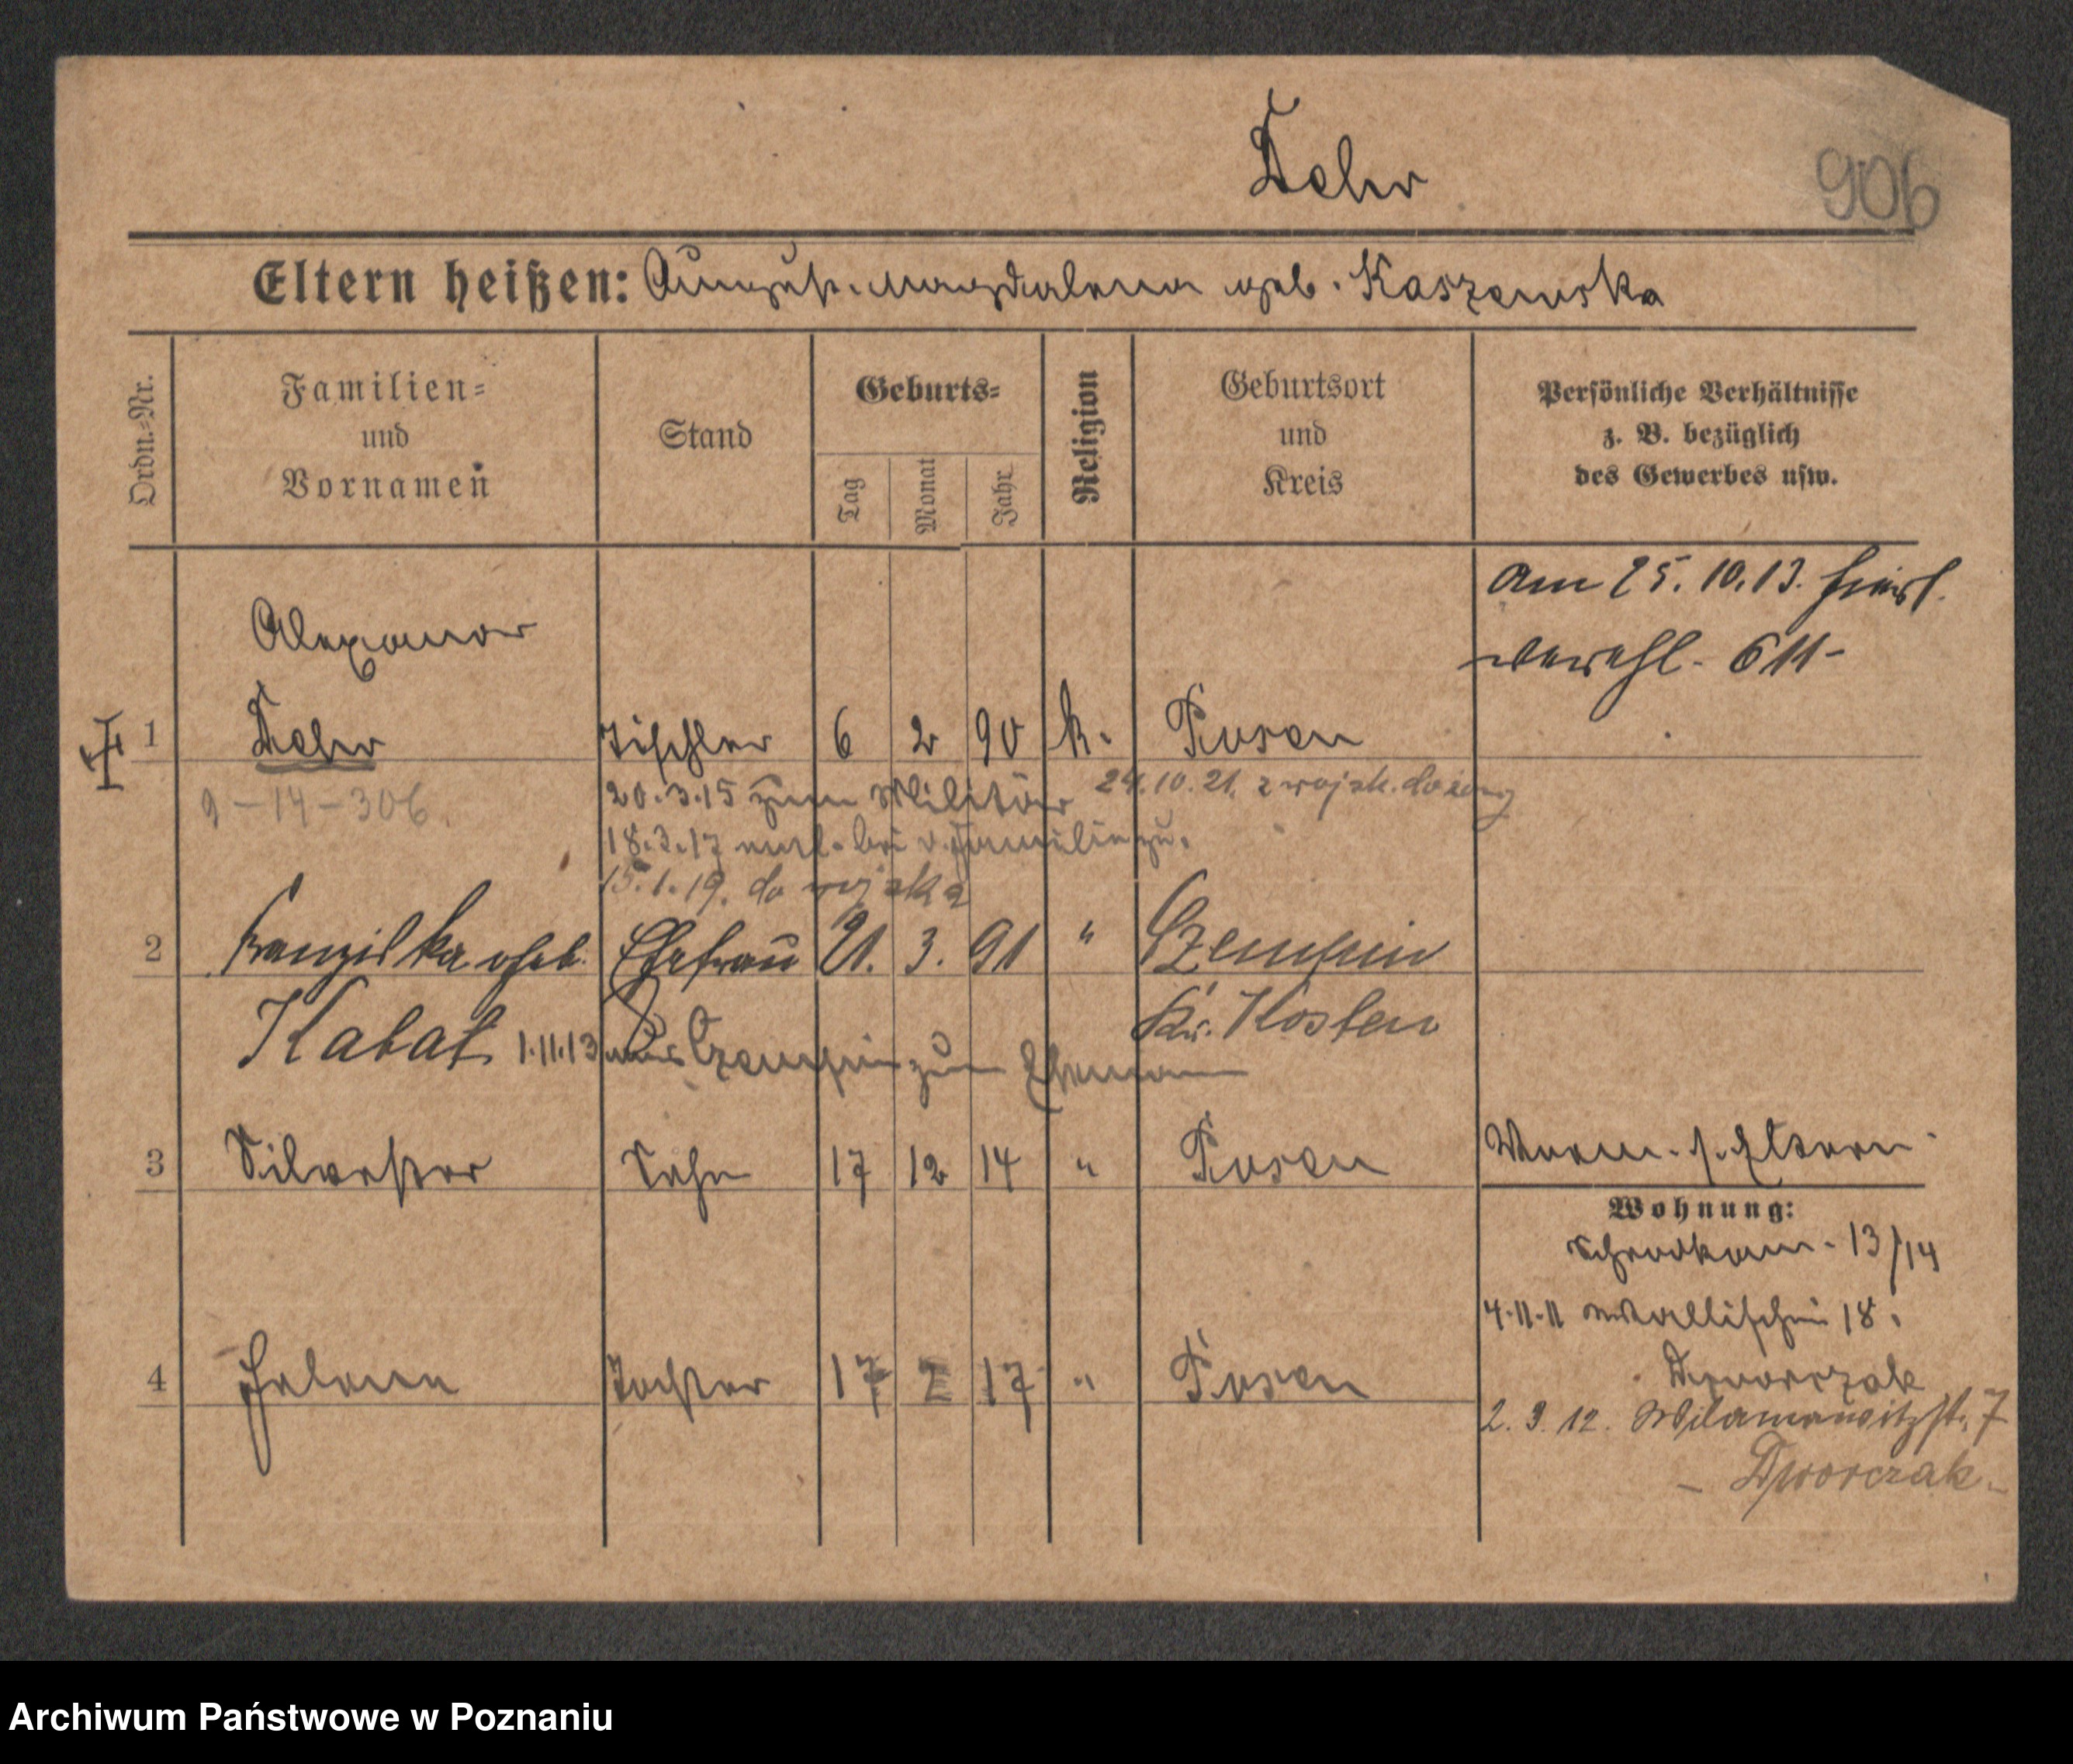 Dehr
906
Eltern heißen: August. Magdalena geb. Kaszewska
Ordn.-Nr.
Familien-
und
Vornamen
Stand
Geburts-
Tag
Monat
Jahr
Religion
Geburtsort
und
Kreis
Persönliche Verhältnisse
z. B. bezüglich
des Gewerbes usw.
Am 25. 10. 13. hierf.
verehl. 611-
Alexander
1 Dehr Tischler 6 2 90 k. Posen
9-14-306.
20.3.15 zum Militär
24.10.21. z wojsk. do żony
18.3.17 entl. bei d. Familie zu.
15.1.19. do wojska
2 Franziska geb. Ehefrau 21. 3. 91 " Czempin
Kabat Kr. Kosten
1.11.13 aus Czempin zum Ehemann
3 Silvester Sohn 17 12 14 " Posen
4 Helena Tochter 17 I 17 " Posen
Wohn. s. Eltern.
Wohnung:
Schrodkam. 13/14
4.11.11 Wallischei 18.
Dworczak
2. 3. 12. Wilamowitzst. 7
- Dworczak -
Archiwum Państwowe w Poznaniu